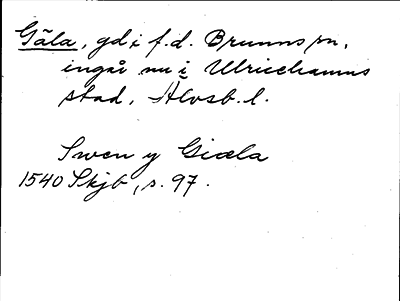 Gäla, gd i f.d. Brunns sn,
ingår nu i Ulricehamns
stad, Älvsb. l.
Swen y Gicela
1540 Skjb, s. 97.